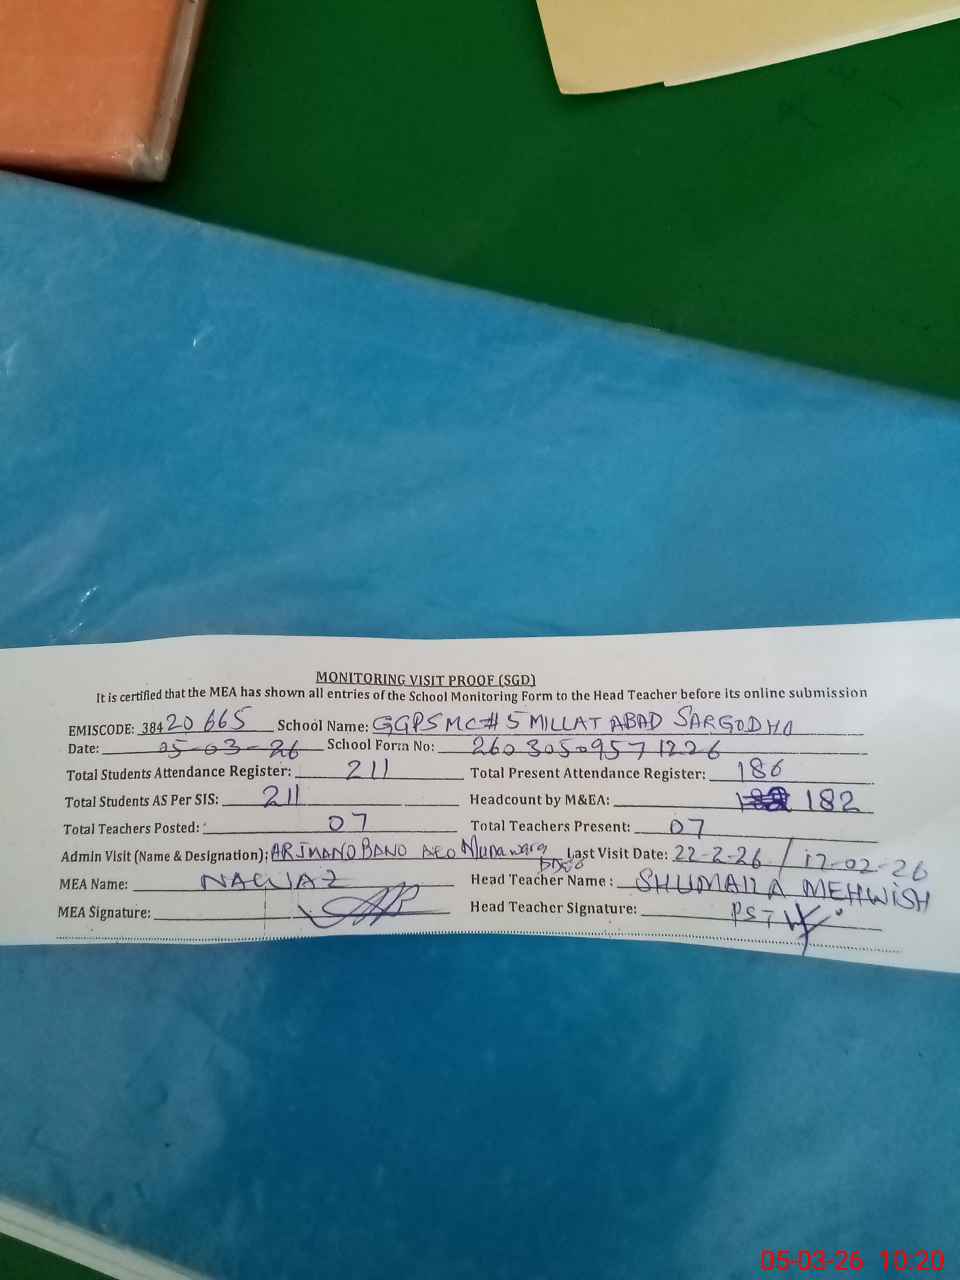 MONITORING VISIT PROOF (SGD)
It is certified that the MEA has shown all entries of the School Monitoring Form to the Head Teacher before its online submission
EMISCODE: 384 20 665 School Name: GGPS MC# 5 MILLAT ABAD SARGODHA
Date: 05-03-26 School Form No: 2603050957 1226
Total Students Attendance Register: 211 Total Present Attendance Register: 186
Total Students AS Per SIS: 211 Headcount by M&EA: 182
Total Teachers Posted: 07 Total Teachers Present: 07
Admin Visit (Name & Designation): BANO AEO Munawara Last Visit Date: 22-2-26 / 17-02-26
MEA Name: NAWAZ Head Teacher Name: SHUMAILA MEHWISH
MEA Signature: Head Teacher Signature: PST
05-03-26 10:20